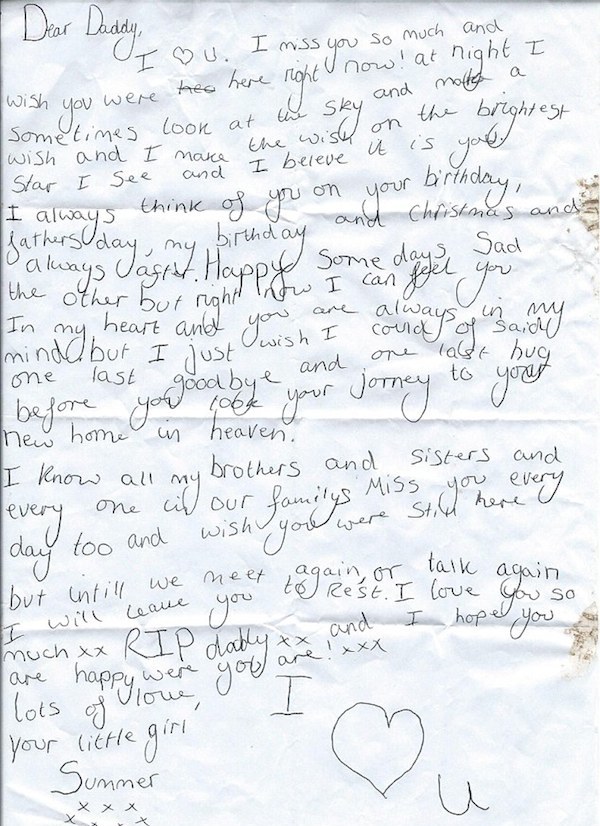 Dear Daddy,
I ♡ U. I miss you so much and
wish you were heo here right now! at night I
sometimes look at the sky and make a
wish and I make the wish on the brightest
Star I See and I beleve it is you.
I always think of you on your birthday,
fathers day, my birthday and christmas and
always Happy some days Sad
the other but right now I can feel you
In my heart and you are always in my
mind, but I just wish I could of said
one last goodbye and one last hug
before you took your jorney to your
new home in heaven.
I Know all my brothers and sisters and
every one in our familys Miss you every
day too and wish you were Still here
but intill we meet again, or talk again
I will leave you to Rest. I love you so
much xx RIP daddy xx and I hope you
are happy were you are! xxx
lots of love,
your little girl
Summer
x x x
x x x x
I
♡
U